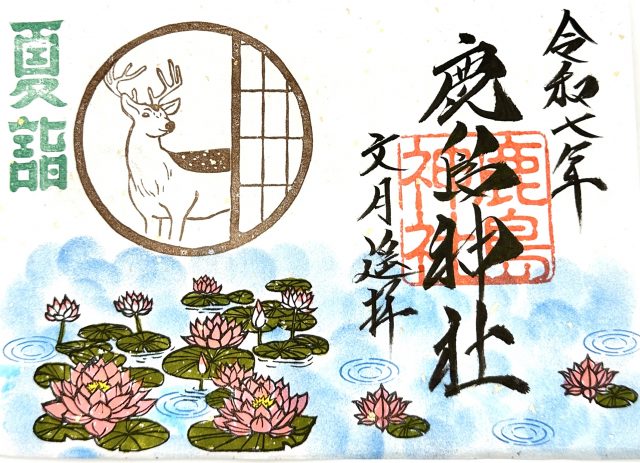 令和七年
鹿島神社
鹿島
神社
文月遥拝
夏詣